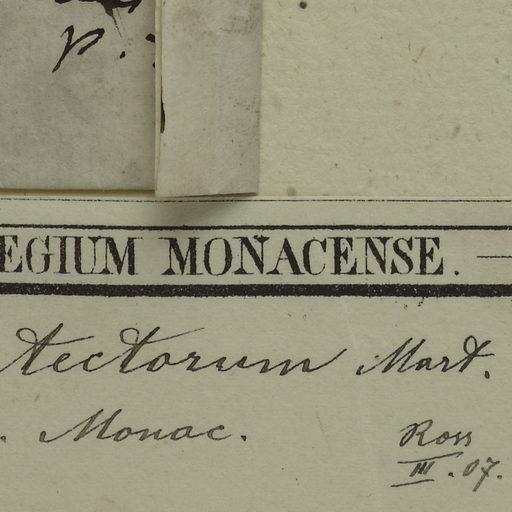 p.
EGIUM MONACENSE.
tectorum Mart.
. Monac.
Ross
III. 07.